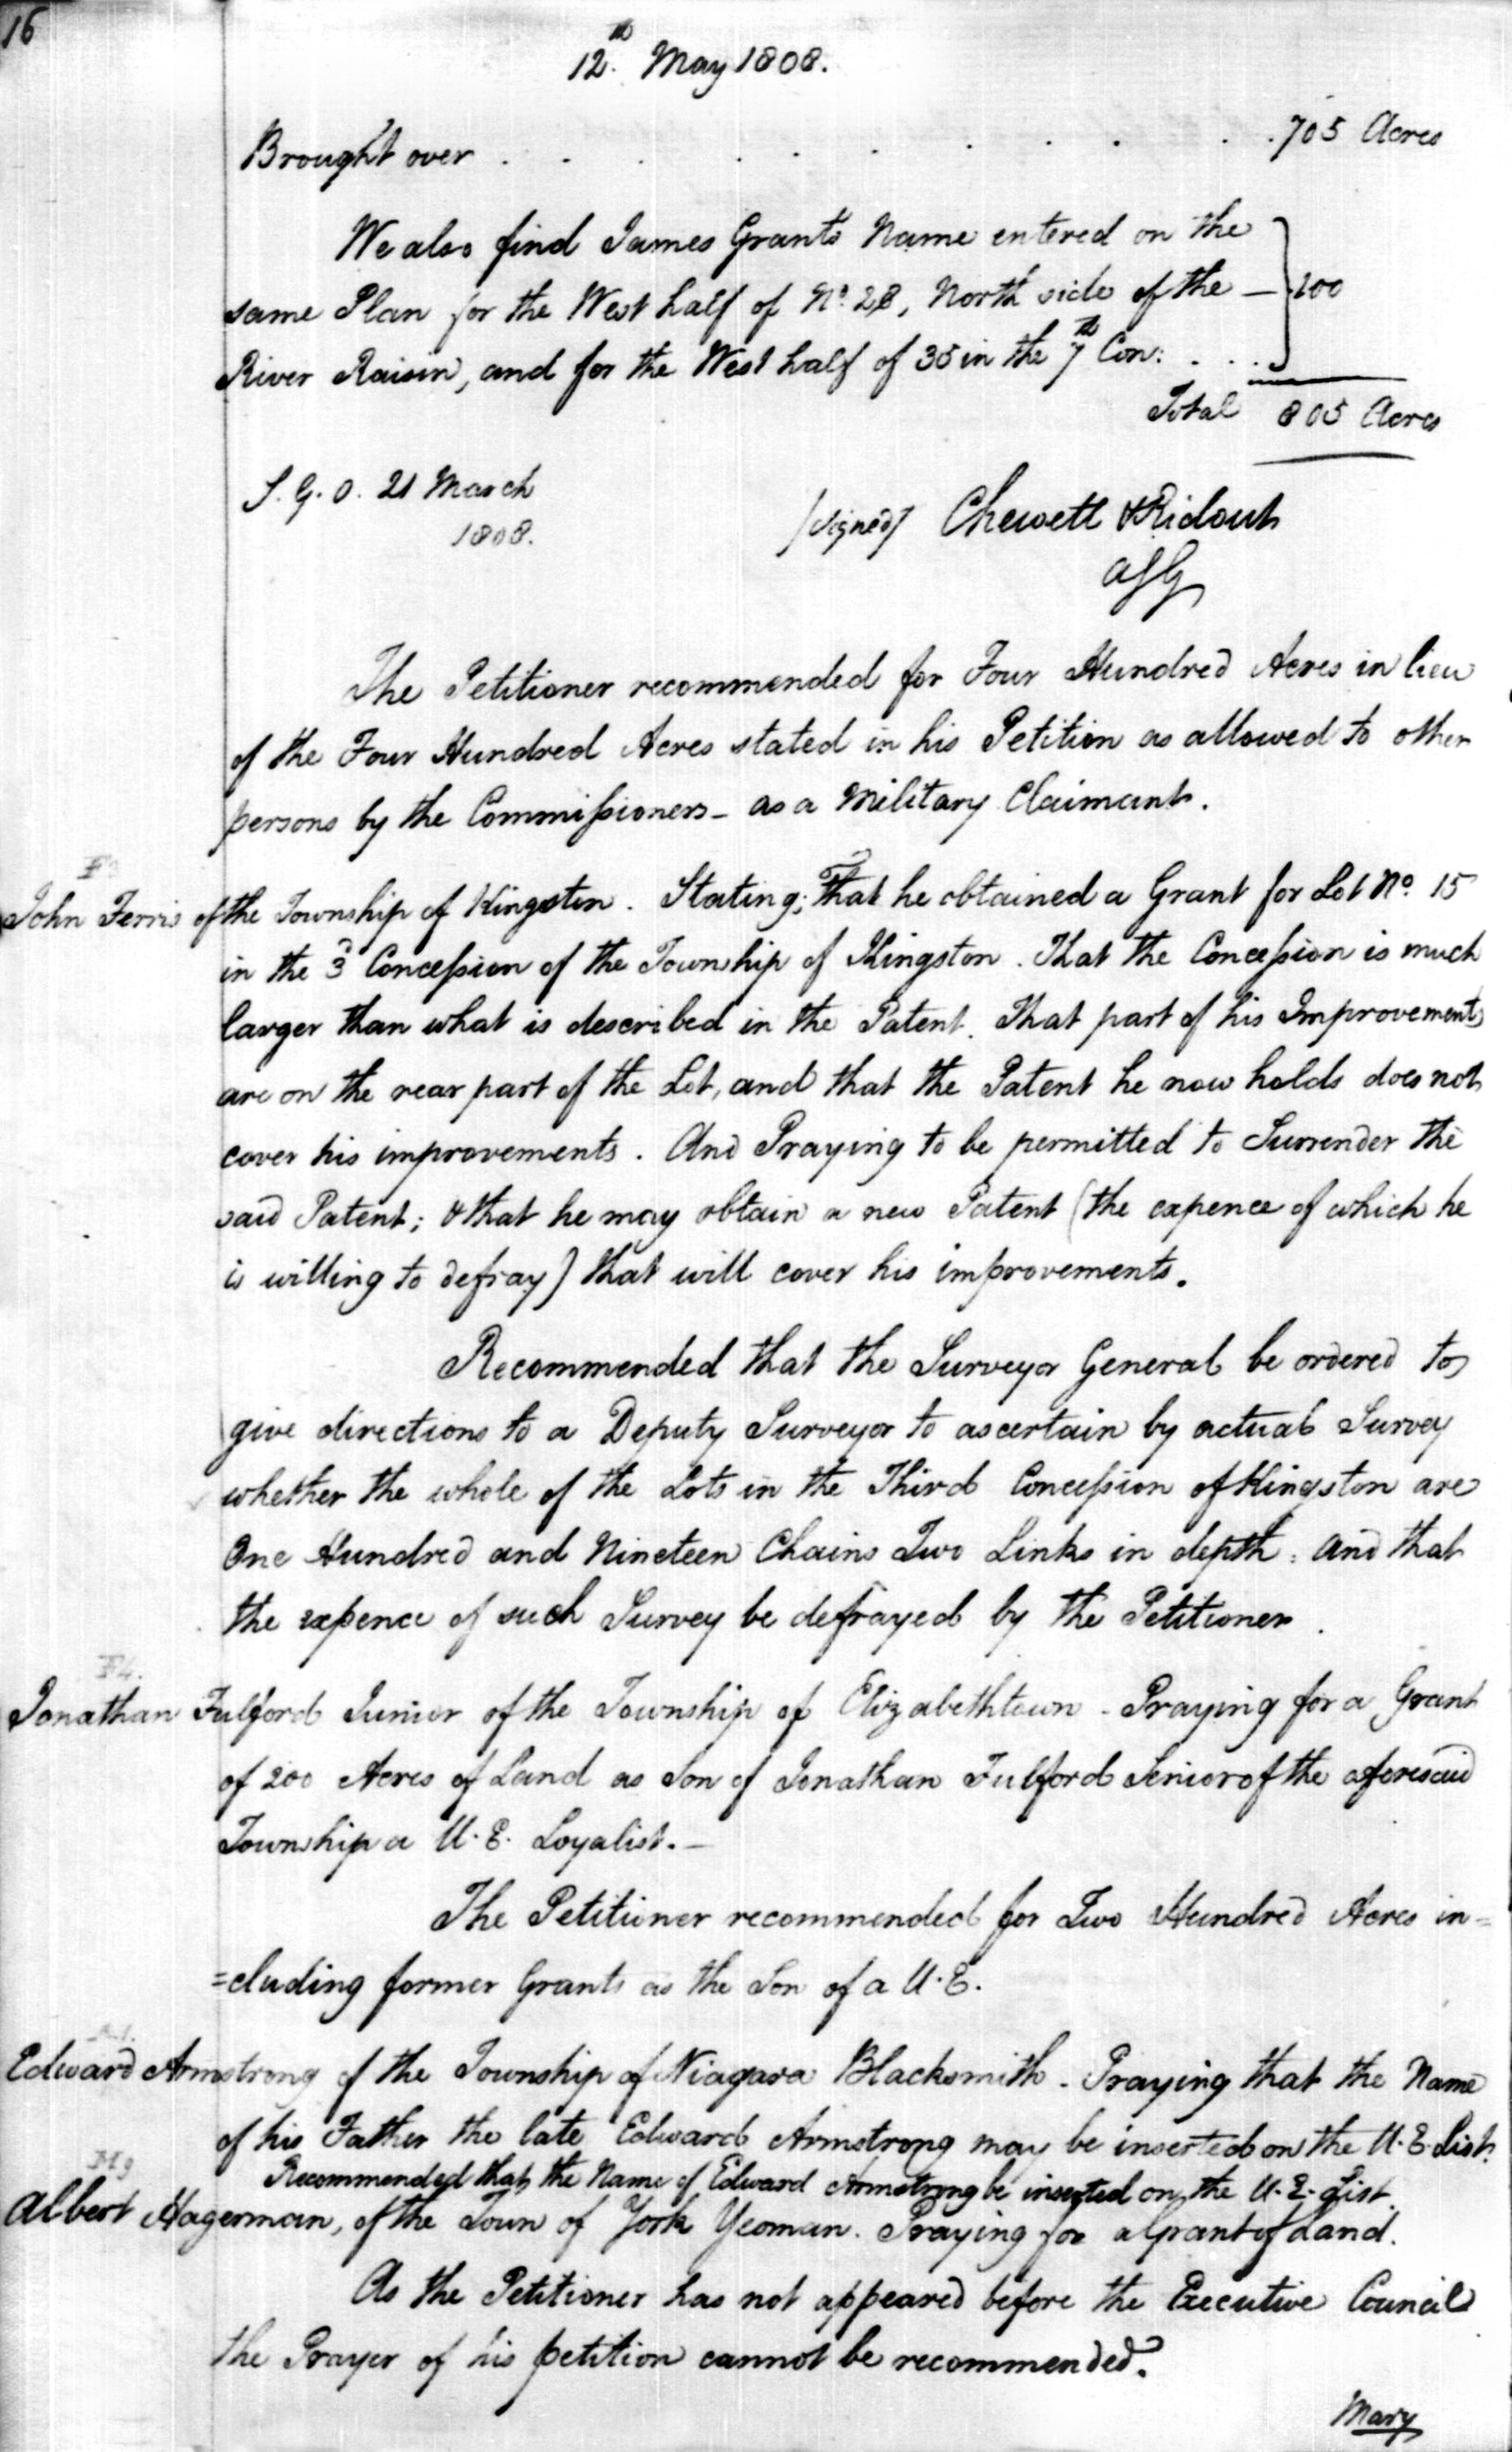 16
12th. May 1808.
Brought over . . . . . . . . . 705 Acres
We also find James Grants Name entered on the
same Plan for the West half of No. 28, North side of the — 100
River Raisin, and for the West half of 35 in the 7th Con: . . .
Total 805 Acres
S. G. O. 21 March
1808.
(signed) Chewett & Ridout
ASG
The Petitioner recommended for Four Hundred Acres in lieu
of the Four Hundred Acres stated in his Petition as allowed to other
persons by the Commissioners - as a Military Claimant.
John Ferris of the Township of Kingston. Stating; That he obtained a Grant for Lot No. 15
in the 3d Concession of the Township of Kingston. That the Concession is much
larger than what is described in the Patent. That part of his Improvements
are on the rear part of the Lot, and that the Patent he now holds does not
cover his improvements. And Praying to be permitted to Surrender the
said Patent; & that he may obtain a new Patent (the expence of which he
is willing to defray) that will cover his improvements.
Recommended that the Surveyor General be ordered to
give directions to a Deputy Surveyor to ascertain by actual Survey
whether the whole of the Lots in the Third Concession of Kingston are
One Hundred and Nineteen Chains Two Links in depth: and that
the expence of such Survey be defrayed by the Petitioner.
F4.
Jonathan Fulford Junior of the Township of Elizabethtown - Praying for a Grant
of 200 Acres of Land as Son of Jonathan Fulford Senior of the aforesaid
Township a U.E. Loyalist. -
The Petitioner recommended for Two Hundred Acres in=
=cluding former Grants as the Son of a U.E.
Edward Armstrong of the Township of Niagara Blacksmith - Praying that the Name
of his Father the late Edward Armstrong may be inserted on the U.E. List.
Recommended that the Name of Edward Armstrong be inserted on the U.E. List.
Albert Hagerman, of the Town of York Yeoman. Praying for a Grant of Land.
As the Petitioner has not appeared before the Executive Council
the Prayer of his petition cannot be recommended.
Mary